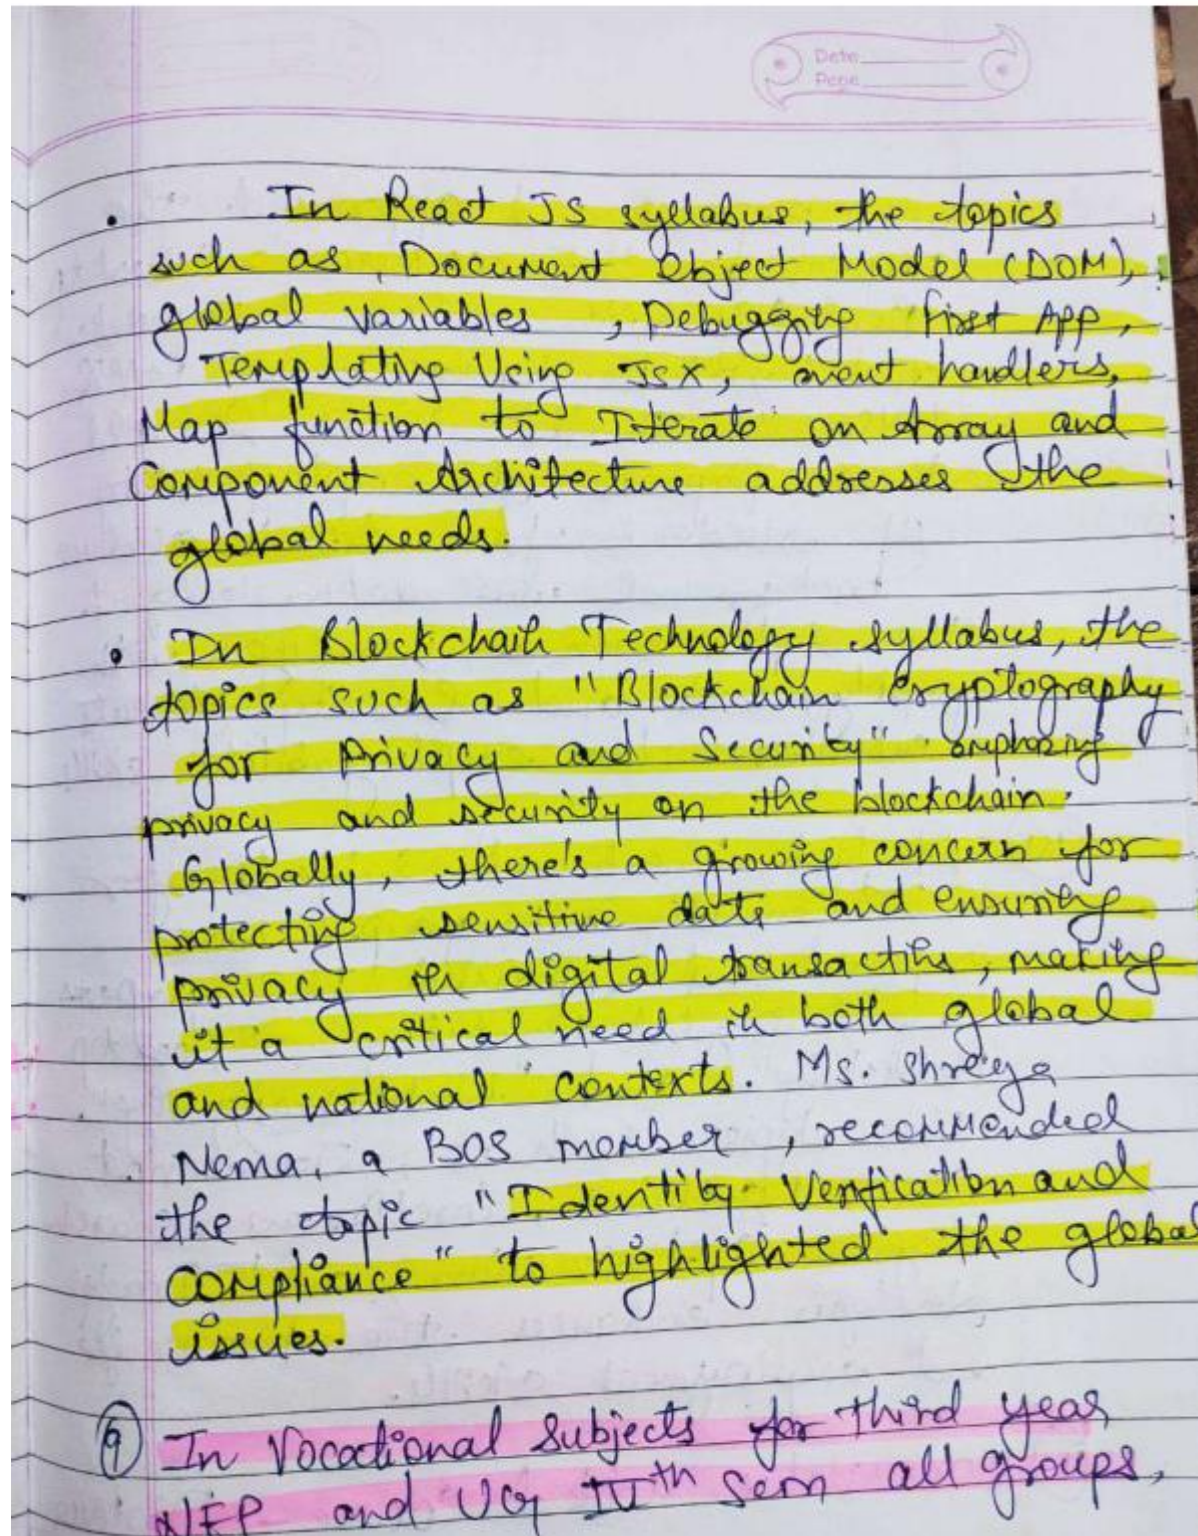 Date
Page
• In React JS syllabus, the topics
such as, Document Object Model (DOM),
global variables, Debugging First App,
Templating Using JSX, event handlers,
Map function to Iterate on Array and
Component Architecture addresses the
global needs.
• In Blockchain Technology syllabus, the
topics such as "Blockchain Cryptography
for Privacy and Security" emphasing
privacy and security on the blockchain.
Globally, there's a growing concern for
protecting sensitive data and ensuring
privacy in digital transactions, making
it a critical need in both global
and national contexts. Ms. Shreya
Nema, a BOS member, recommended
the topic "Identity Verification and
Compliance" to highlighted the global
issues.
9 In Vocational Subjects for third year
NEP and UG IVth sem all groups,